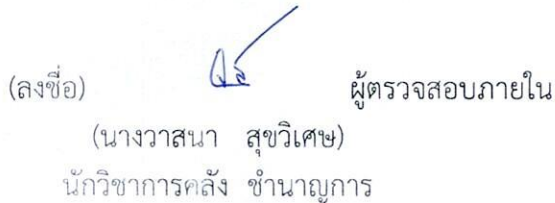 (ลงชื่อ) ผู้ตรวจสอบภายใน
(นางวาสนา สุขวิเศษ)
นักวิชาการคลัง ชำนาญการ